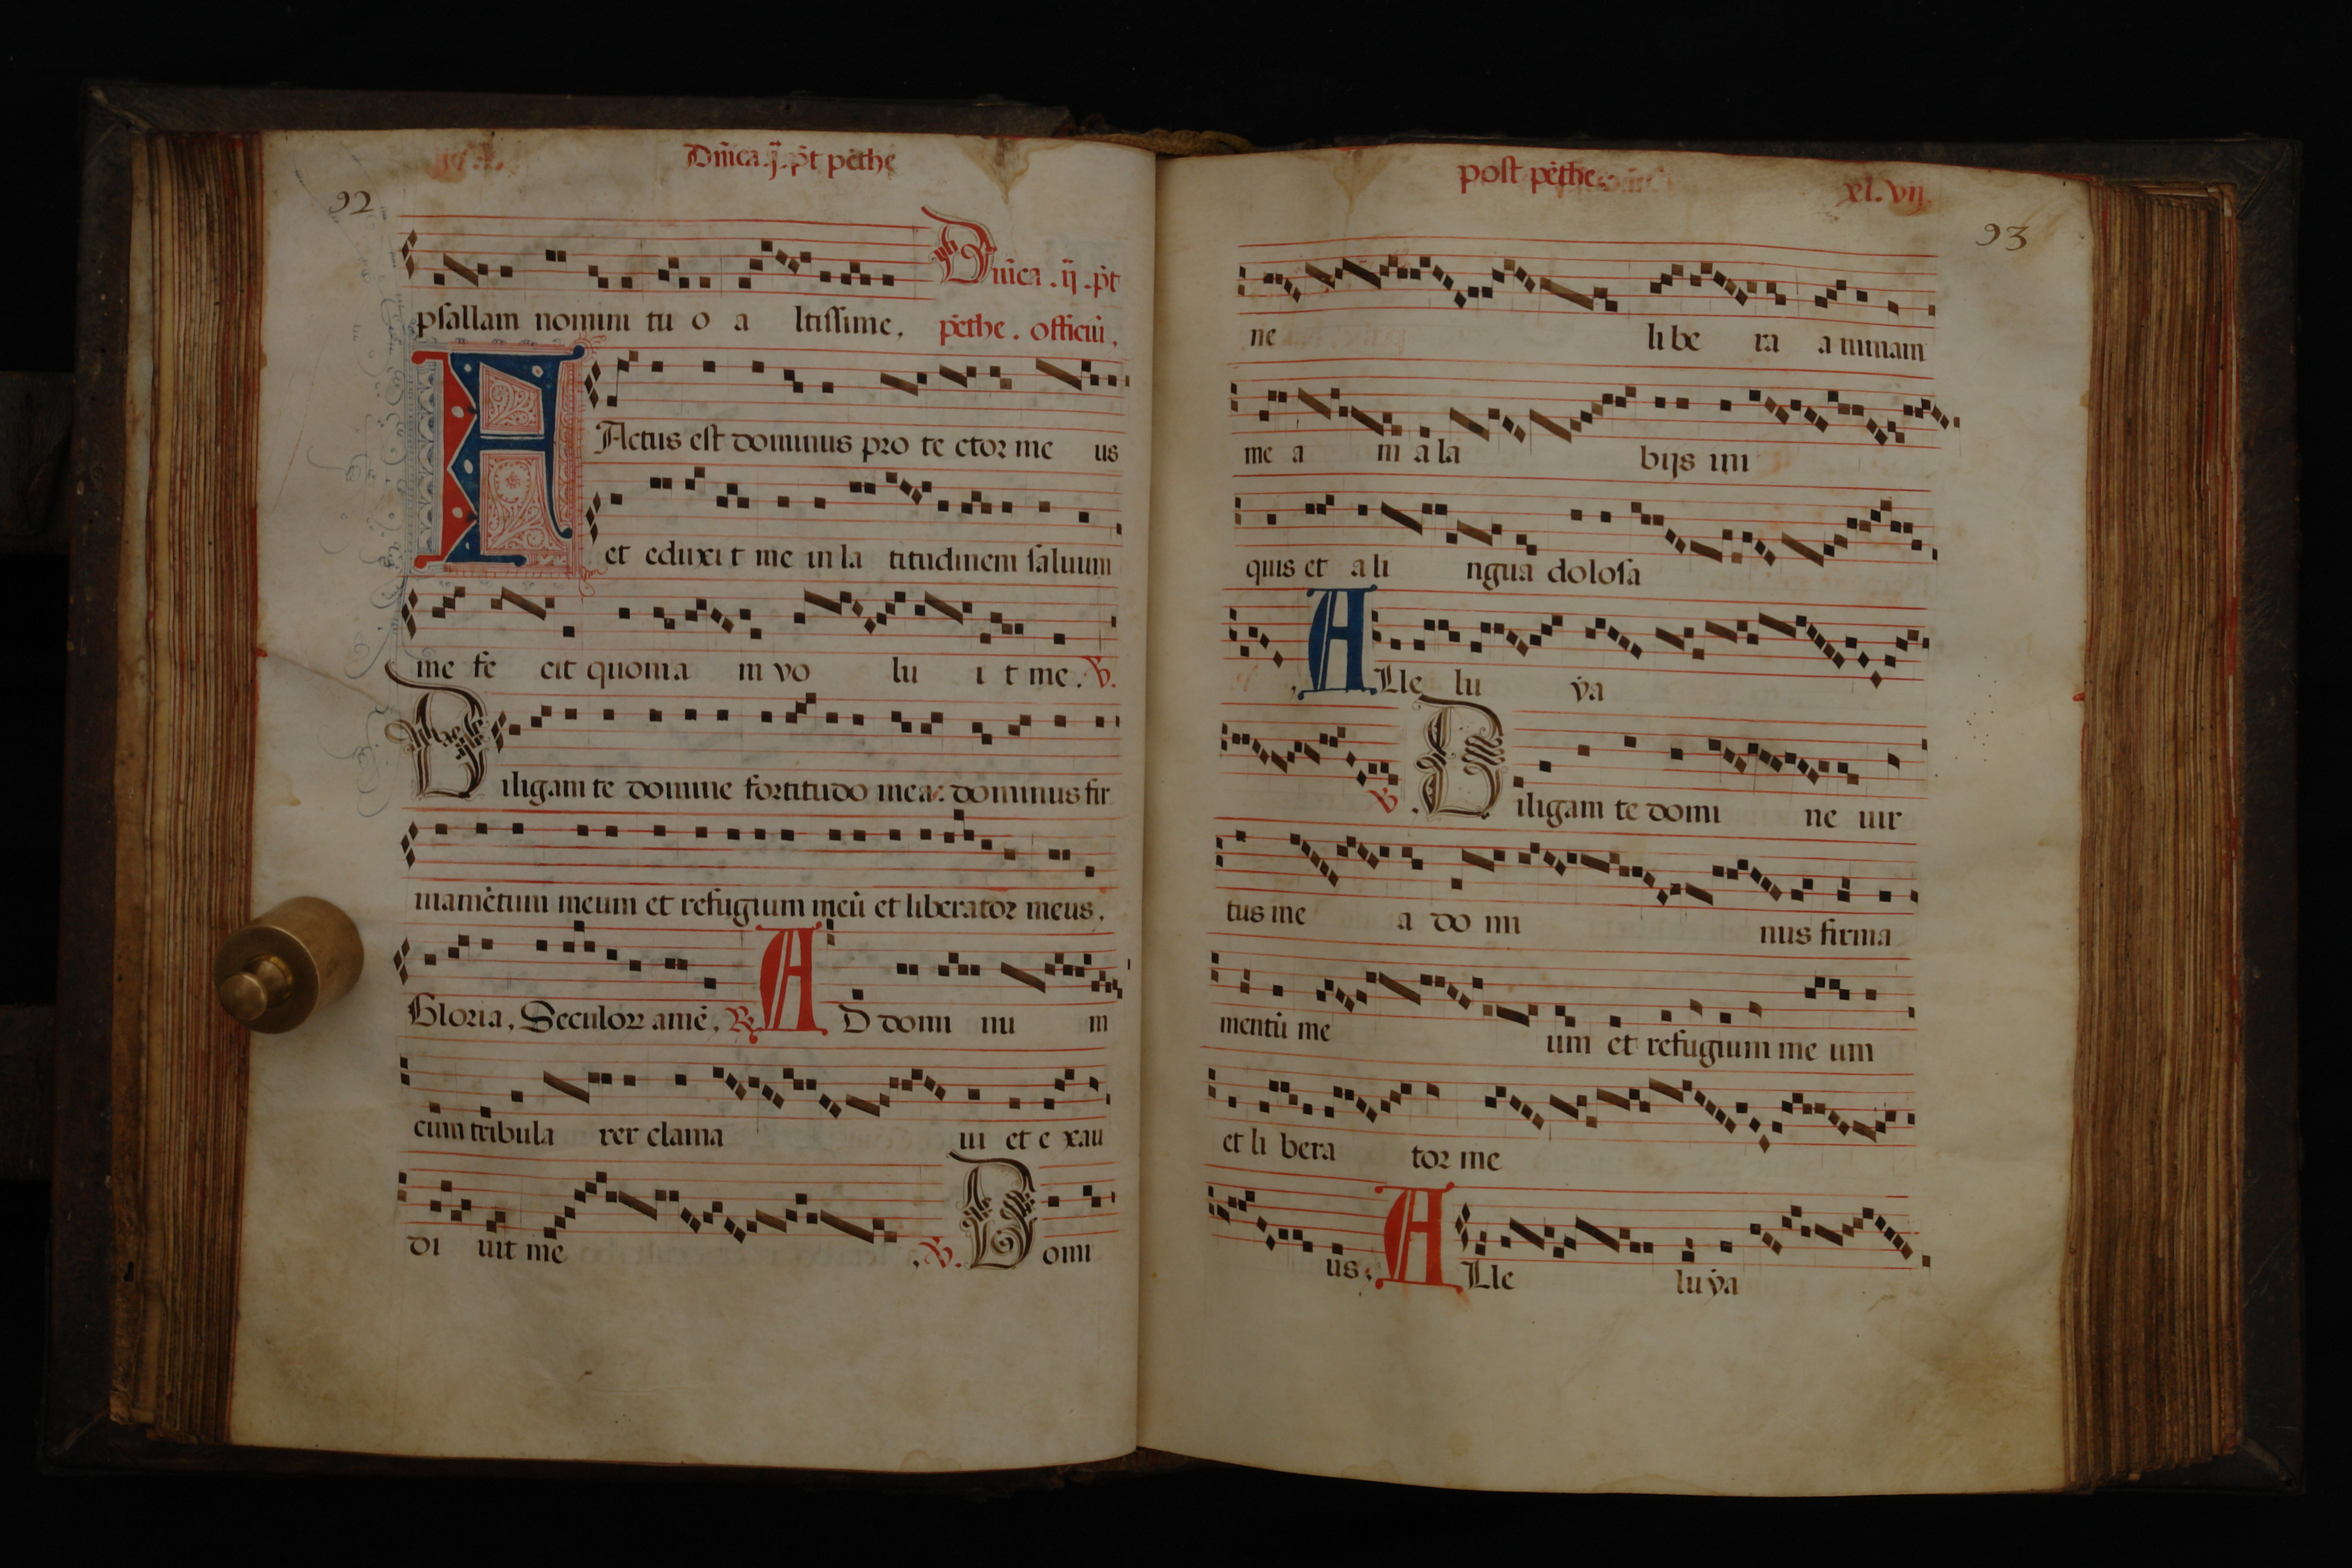 Dñica .ij. p̃t pẽthe
92
psallam nomini tu o a ltissime,
Dñica . ij . p̃t
pẽthe . officiũ,
FActus est dominus pro te ctor me us
et eduxi t me in la titudinem saluum
me fe cit quonia m vo lu i t me . V.
Diligam te domine fortitudo mea: dominus fir
mamẽtum meum et refugium meũ et liberator meus,
Gloria, Seculorꝝ amẽ, R AD domi nu m
cũm tribula rer clama ui et e xau
di uit me , V. Domi
post pẽthe. xl. vij
93
ne libe ra animam
me a m a la bijs ini
quis et a li ngua dolosa
. ALle lu ẏa
V . Diligam te domi ne uir
tus me a do mi nus firma
mentũ me um et refugium me um
et li bera tor me
us. ALle lu ẏa